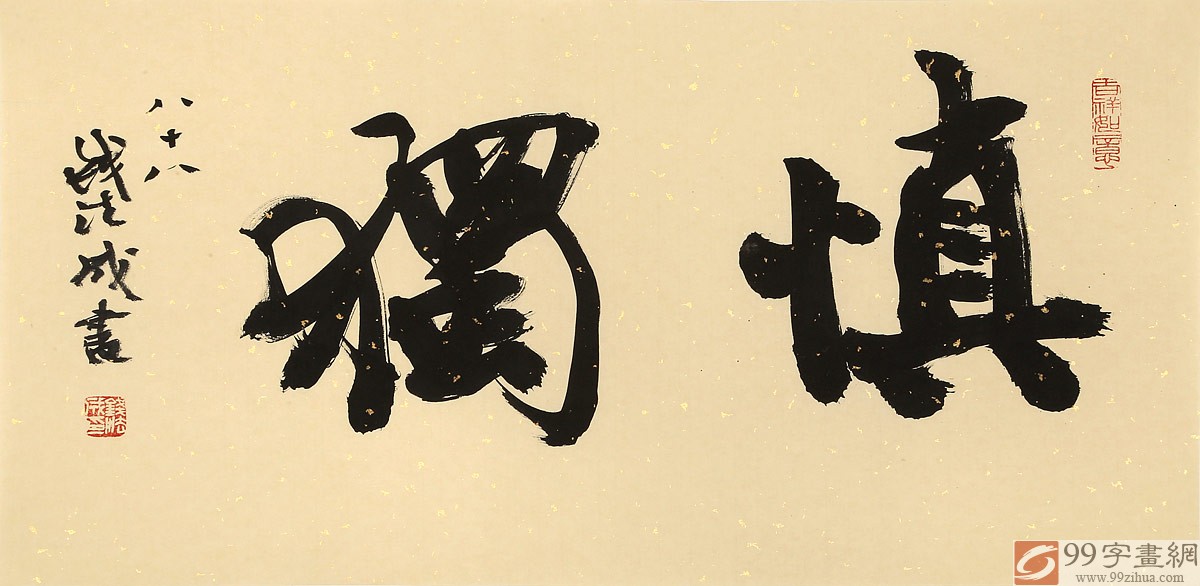 慎獨
吉祥如意
八十八
錢法成書
錢法成印
99字畫網
www.99zihua.com